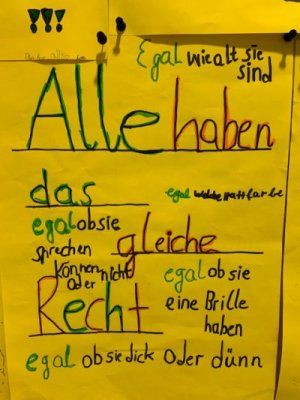 !!!
Egal wie alt sie
sind
Alle haben
das
egal hautfarbe
egal ob sie
sprechen
können nicht
oder
gleiche
Recht
egal ob sie
eine Brille
haben
egal ob sie dick oder dünn